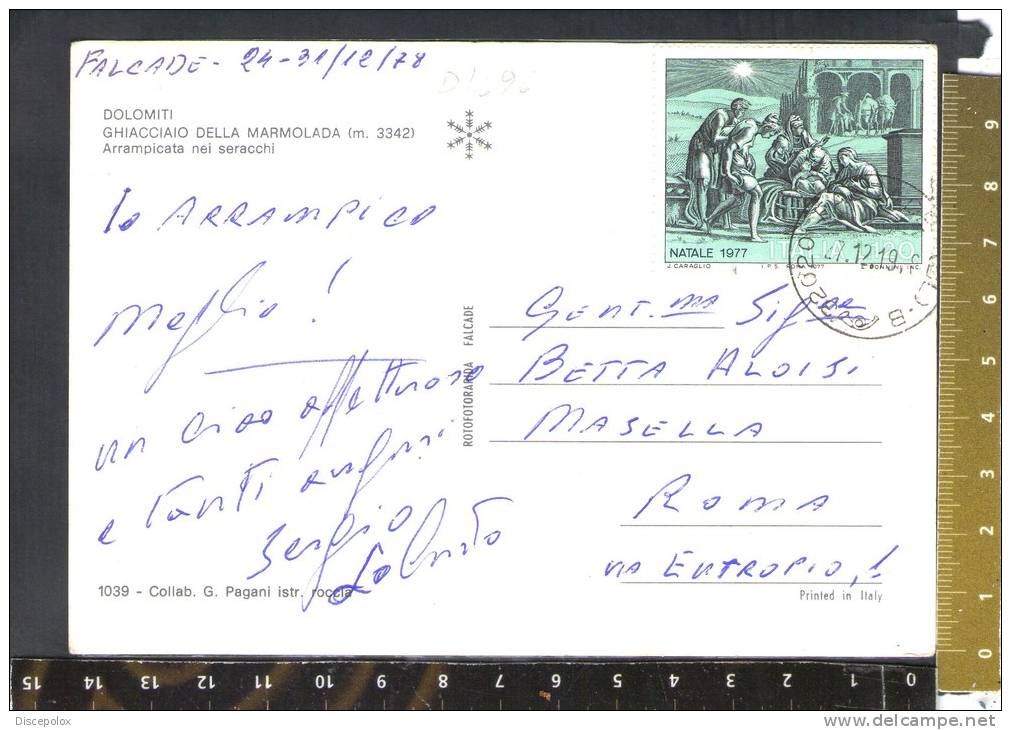 FALCADE - 24-31/12/78
DOLOMITI
GHIACCIAIO DELLA MARMOLADA (m. 3342)
Arrampicata nei seracchi
Io ARRAMPICO
Meglio!
un ciao affettuoso
e tanti auguri
Sergio
1039 - Collab. G. Pagani istr. roccia
ROTOFOTORARIDA FALCADE
NATALE 1977 ITALIA 120
J. CARAGLIO I.P.S. ROMA 1977 E. DONNINI INC.
32020
Gent.ma Sig.ra
BETTA ALOISI
MASELLA
ROMA
VIA ENTROPIO, 1
Printed in Italy
9
8
7
6
5
4
3
2
1
0
15 14 13 12 11 10 9 8 7 6 5 4 3 2 1 0
Discepolox
http://www.delcampe.net